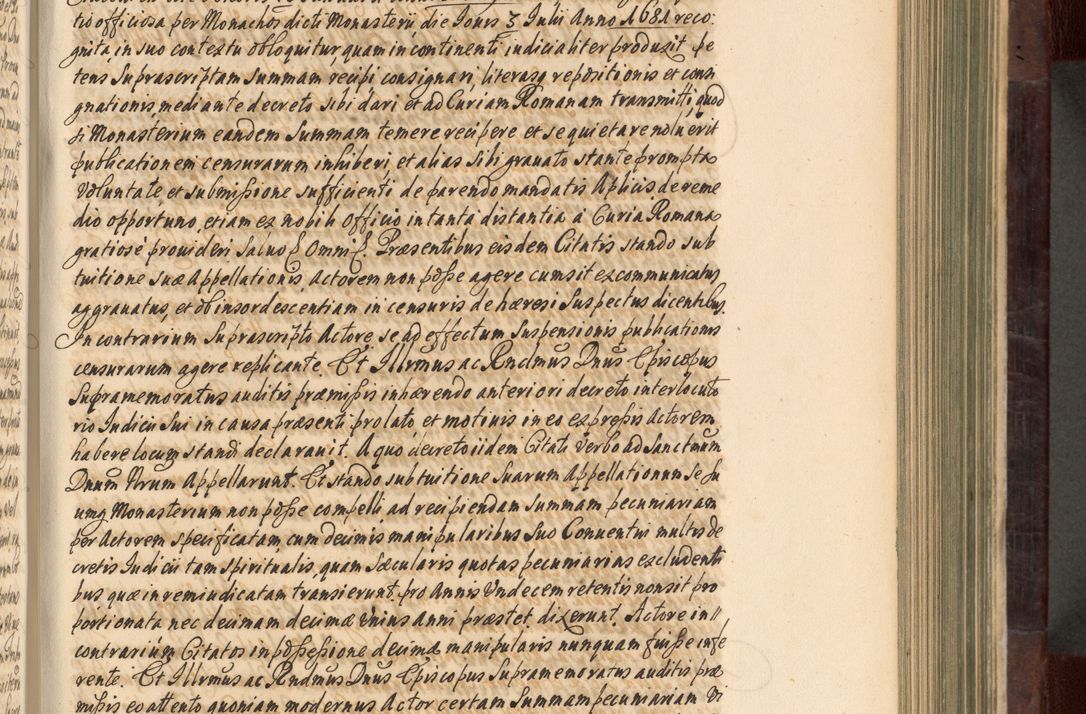 tio officiosa per Monachos dicti Monasterii, die Iouis 3 Iulii Anno 1681 reco:
gnita, in suo contextu obloquitur, quam in continenti iudicialiter produxit pe
tens Suprascriptam Summam recipi consignari, literasq repositionis et consi
gnationis, mediante decreto sibi dari et ad Curiam Romanam transmitti, quod
si Monasterium eandem Summam temere recipere et se quietare noluerit
publicationem censurarum inhiberi, et alias sibi grauato stante prompta
Voluntate et submissione sufficienti de parendo mandatis Aplicis de reme
dio opportuno, etiam ex nobili officio in tanta distantia à Curia Romana
gratiosè prouideri Saluo § Omni §. Præsentibus eisdem Citatis stando sub
tuitione suæ Appellationis, Actorem non posse agere cum sit excommunicatus,
aggrauatus, et ob insordescentiam in censuris de hæresi Suspectus dicentibus.
In contrarium Suprascripto Actore, se ad effectum Suspensionis publicationis
censurarum agere replicante. Et Illrmus ac Rndmus Dnus Episcopus
Supramemoratus auditis præmissis inhærendo anteriori decreto interlocuto
rio Iudicii Sui in causa præsenti prolato et motiuis in eo expressis Actorem
habere locum standi declarauit. A quo decreto iidem Citati Verbo ad Sanctmum
Dnum Nrum Appellarunt. Et stando sub tuitione Suarum Appellationum Se Su
umq Monasterium non posse compelli, ad recipiendam Summam pecuniariam
per Actorem specificatam, cum decimis manipularibus Suo Conuentui multis de
cretis Iudicii tam Spiritualis, quam Sæcularis quotas pecuniarias excludenti
bus quæ in rem iudicatam transierunt. pro Annis Vndecem retentis non sit pro
portionata nec decimam decimæ Vnius anni præstet, dixerunt. Actore in
contrarium Citatos in possessione decimæ manipularis nunquam fuisse infe
rente. Et Illrmus ac Rndmus Dnus Episcopus Supramemoratus auditis præ
missis eo attento quoniam modernus Actor certam Summam pecuniariam Vi